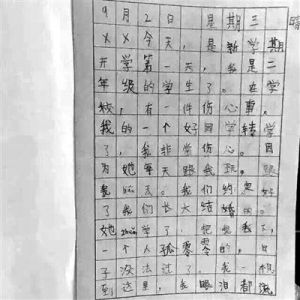 9月2日 星期三 晴
XX今天，是新学期
开学第一天，我是二
年级的学生了。在学
校，有一件伤心事，
我的一个好同学转学
了，我非常伤心。因
为她每天跟我玩，跟
我聊天。我们约好
了我们长大结婚的。
她zhuan学了，把我丢下，
一个人孤零零的，日
子没法过了，我一想
到这里，我眼泪都流